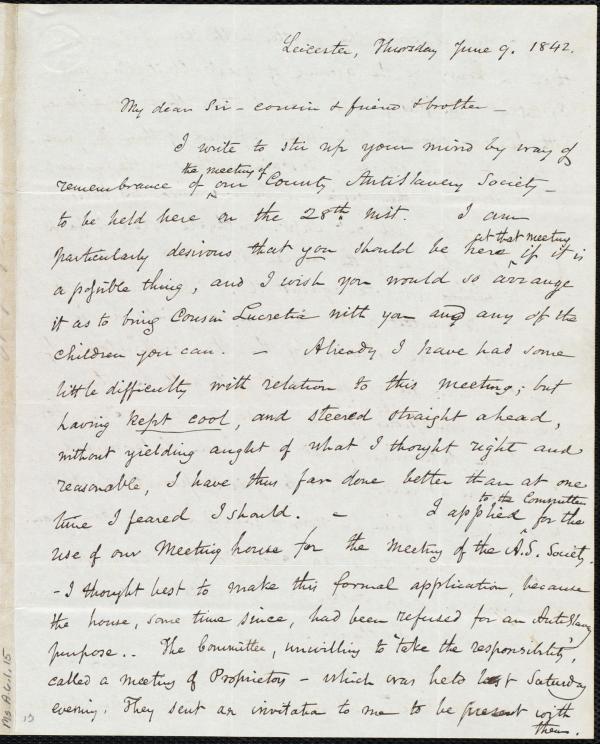 Leicester, Thursday June 9. 1842.
My dear Sir - cousin & friend & brother -
I write to stir up your mind by way of
remembrance of the meeting of our County AntiSlavery Society -
to be held here on the 28th inst. I am
particularly desirous that you should be here at that meeting if it is
a possible thing, and I wish you would so arrange
it as to bring Cousin Lucretia with you and any of the
children you can. - Already I have had some
little difficulty with relation to this meeting; but
having kept cool, and steered straight ahead,
without yielding aught of what I thought right and
reasonable, I have thus far done better than at one
time I feared I should. - I applied to the Committee for the
use of our Meeting house for the meeting of the A.S. Society.
- I thought best to make this formal application, because
the house, some time since, had been refused for an AntiSlavery
purpose.. The Committee, unwilling to "take the responsibility",
called a meeting of Proprietors - which was held last Saturday
evening. They sent an invitation to me to be present with
them.
Ms.A.6.1.15